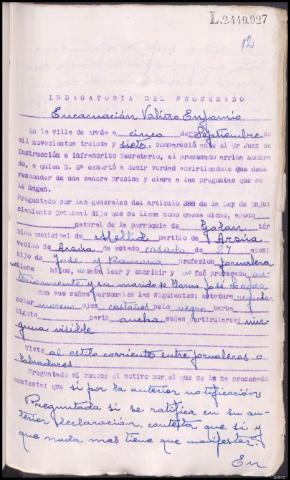 L.2449.927
12
INDAGATORIA DEL PROCESADO
Encarnación Valiño Enfanio
En la villa de Arzúa a cinco de Septiembre de
mil novecientos treinta y siete, compareció ante el Sr Juez de
Instrucción e infrascrito Secretario, el procesado arriba nombra
do, a quien S. Sª exhortó a decir verdad advirtiendole que debe
responder de una manera precisa y clara a las preguntas que se
le hagan.
Preguntado por las generales del articulo 388 de la Ley de Enjui
ciamiento criminal dijo que se llama como queda dicho, apodo
natural de la parroquia de Golan tér
mino municipal de Mellid partido de Arzúa
vecino de Arzúa de estado casada de 27 años;
hijo de José y Ramona profesion jornalera
hijos, leer y escribir y no fué procesado an
teriormente y su marido se llama José
son sus señas personales las siguientes: estatura regular
color moreno ojos castaños pelo negro barba
bigote paris ancha señas particulares nin
guna visible
Viste al estilo corriente entre jornaleros o
labradores
Preguntado si conoce el motivo por el que se le ha procesado
contesta: que si por la anterior notificación
Preguntada si se ratifica en su an
terior declaración, contesta que si y
que nada mas tiene que manifestar.
En